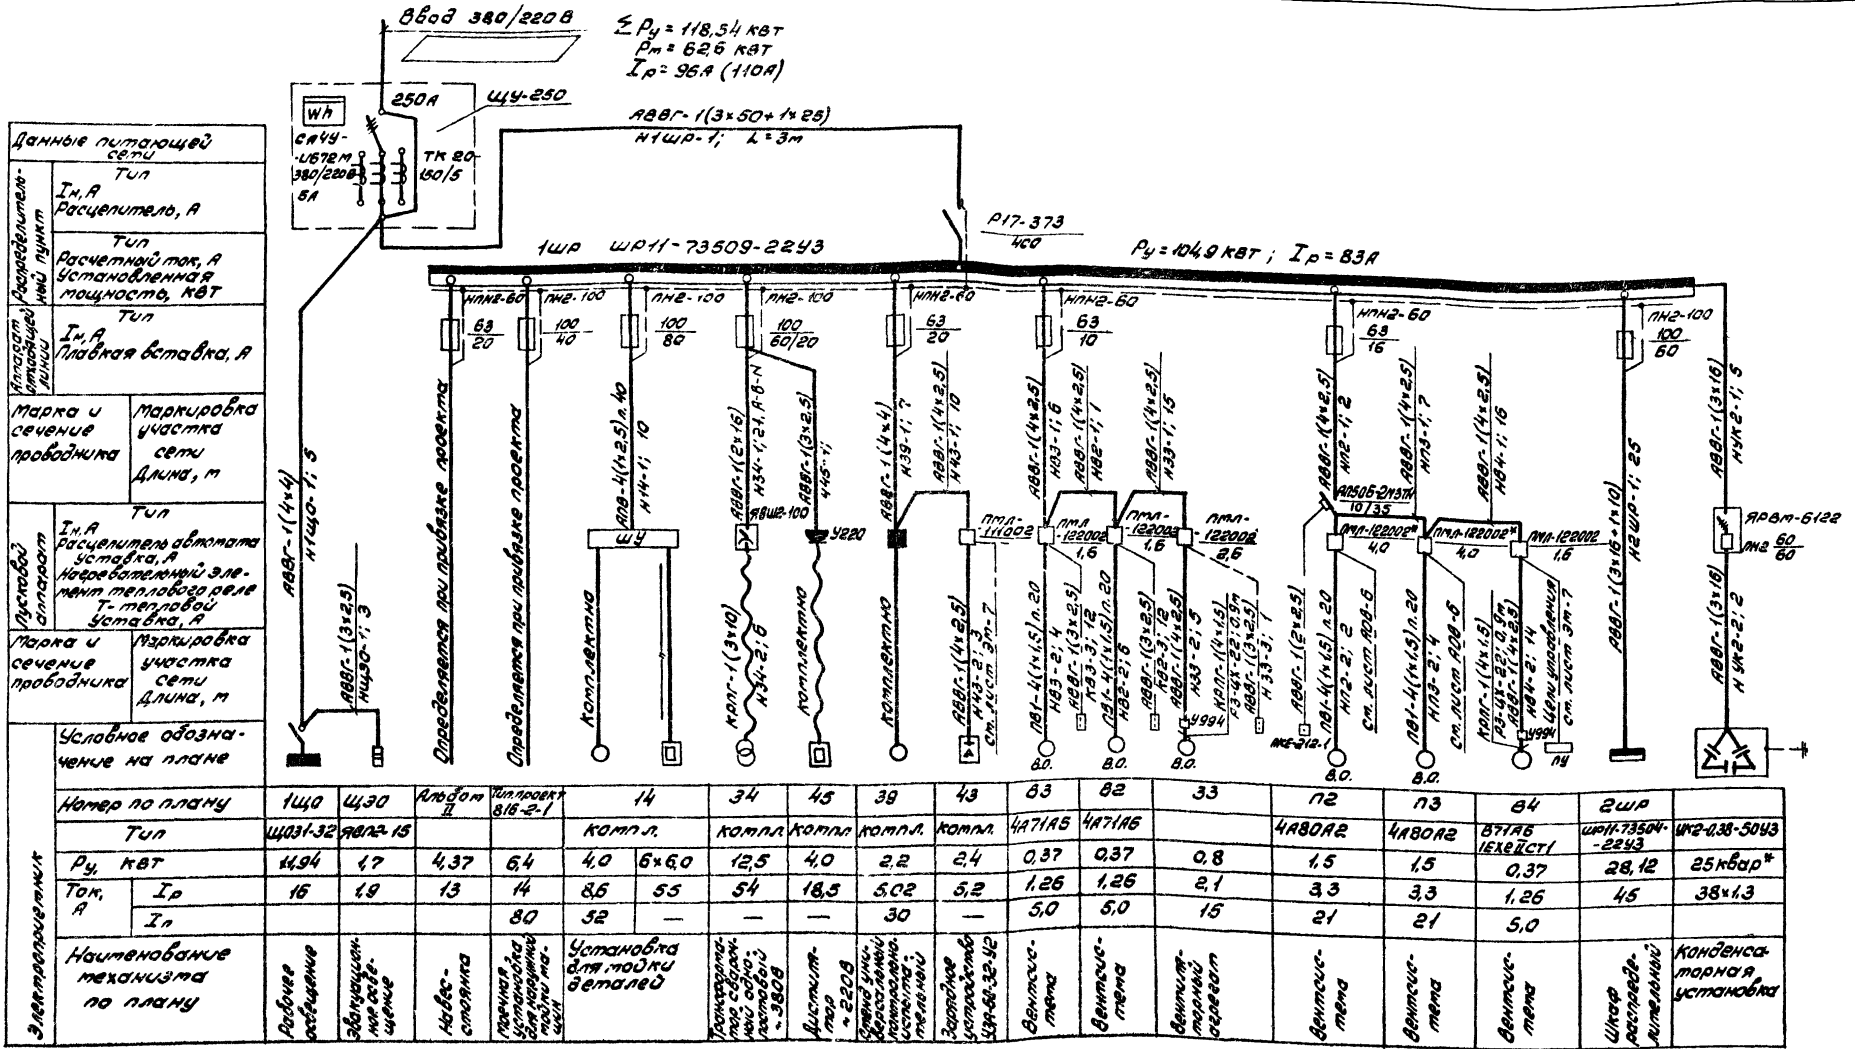 Ввод 380/220В
Σ Ру = 118,54 квт
Рм = 62,6 квт
Iр = 96А (110А)
250А
ЩУ-250
Wh
СА4У-
-И672М
380/220В
5А
ТК 20-
150/5
АВВГ-1(3×50+1×25)
Н1ШР-1; L=3м
Р17-373
400
1ШР ШР11-73509-22У3
Ру=104,9 квт; Iр=83А
Данные питающей
сети
Распределитель-
ный пункт
Тип
Iн, А
Расцепитель, А
Тип
Расчетный ток, А
Установленная
мощность, квт
Аппарат
отходящей
линии
Тип
Iн, А
Плавкая вставка, А
Марка и
сечение
проводника
Маркировка
участка
сети
Длина, м
Пусковой
аппарат
Тип
Iн, А
Расцепитель автомата
уставка, А
Нагревательный эле-
мент теплового реле
Т-тепловой
Уставка, А
Марка и
сечение
проводника
Маркировка
участка
сети
Длина, м
НПН2-60
63
20
ПН2-100
100
40
ПН2-100
100
80
ПН2-100
100
60/20
НПН2-60
63
20
НПН2-60
63
10
НПН2-60
63
16
ПН2-100
100
60
АВВГ-1(4×4)
Н1ЩО-1; 5
АВВГ-1(3×2,5)
НЩЭО-1; 3
Определяется при привязке проекта
Определяется при привязке проекта
АПВ-4(1×2,5)п.40
Н14-1; 10
ШУ
Комплектно
АВВГ-1(2×16)
Н34-1; 21, А-В-N
ЯВШ2-100
КРПГ-1(3×10)
Н34-2; 6
АВВГ-1(3×2,5)
Н45-1;
У220
Комплектно
АВВГ-1(4×4)
Н39-1; 7
Комплектно
АВВГ-1(4×2,5)
Н43-1; 10
ПМЛ-
-111002
АВВГ-1(4×2,5)
Н43-2; 3
см. лист ЭМ-7
АВВГ-1(4×2,5)
НВ3-1; 6
ПМЛ
-122002
1,6
ПВ1-4(1×1,5)п.20
НВ3-2; 4
АВВГ-1(3×2,5)
КВ3-3; 12
В.О.
АВВГ-1(4×2,5)
НВ2-1; 1
ПМЛ-
-122002
1,6
ПВ1-4(1×1,5)п.20
НВ2-2; 6
АВВГ-1(3×2,5)
КВ2-3; 12
В.О.
АВВГ-1(4×2,5)
Н33-1; 15
ПМЛ-
-122002
2,6
АВВГ-1(4×2,5)
Н33-2; 5
КРПГ-1(4×1,5)
РЗ-ЦХ-22; 0,9м
АВВГ-1(3×2,5)
Н33-3; 1
У994
В.О.
АВВГ-1(4×2,5)
НП2-1; 2
АП50Б-2М3ТН
10/3,5
АВВГ-1(2×2,5)
ПКЕ-212-1
ПМЛ-122002*
4,0
ПВ1-4(1×1,5)п.20
НП2-2; 2
см. лист АОВ-6
В.О.
АВВГ-1(4×2,5)
НП3-1; 7
ПМЛ-122002*
4,0
ПВ1-4(1×1,5)п.20
НП3-2; 4
см. лист АОВ-6
В.О.
АВВГ-1(4×2,5)
НВ4-1; 16
ПМЛ-122002
1,6
КРПГ-1(4×1,5)
РЗ-ЦХ-22; 0,9м
АВВГ-1(4×2,5)
НВ4-2; 14
Цепи управления
см. лист ЭМ-7
У994
ПУ
АВВГ-1(3×16+1×10)
Н2ШР-1; 25
АВВГ-1(3×16)
НУК2-1; 5
ЯРВМ-6122
ПН2 60
60
АВВГ-1(3×16)
НУК2-2; 2
Электроприемник
Условное обозна-
чение на плане
Номер по плану 1ЩО ЩЭО Альбом II Тип.проект 816-2-1 14 34 45 39 43 В3 В2 33 П2 П3 В4 2ШР
Тип ЩО31-32 ЯВПЗ-15 компл. компл. компл. компл. компл. 4А71А6 4А71А6 4А80А2 4А80А2 В71А6 1ЕХеIIСТ1 ШР11-73504-22У3 УК2-0,38-50У3
Ру, квт 11,94 1,7 4,37 6,4 4,0 6×6,0 12,5 4,0 2,2 2,4 0,37 0,37 0,8 1,5 1,5 0,37 28,12 25квар*
Ток, А Iр 16 1,9 13 14 8,6 55 54 18,5 5,02 5,2 1,26 1,26 2,1 3,3 3,3 1,26 45 38×1,3
Iп 80 52 — — — 30 — 5,0 5,0 15 21 21 5,0
Наименование
механизма
по плану
Рабочее
освещение
Эвакуацион-
ное осве-
щение
Навес-
стоянка
Моечная
установка
для наружной
мойки ма-
шин
Установка
для мойки
деталей
Трансформа-
тор свароч-
ный одно-
постовый
~380В
Дистилля-
тор
~220В
Стенд уни-
версальный
контрольно-
испыта-
тельный
Зарядное
устройство
Вентсис-
тема
Вентсис-
тема
Вентиля-
торный
агрегат
Вентсис-
тема
Вентсис-
тема
Вентсис-
тема
Шкаф
распреде-
лительный
Конденса-
торная
установка